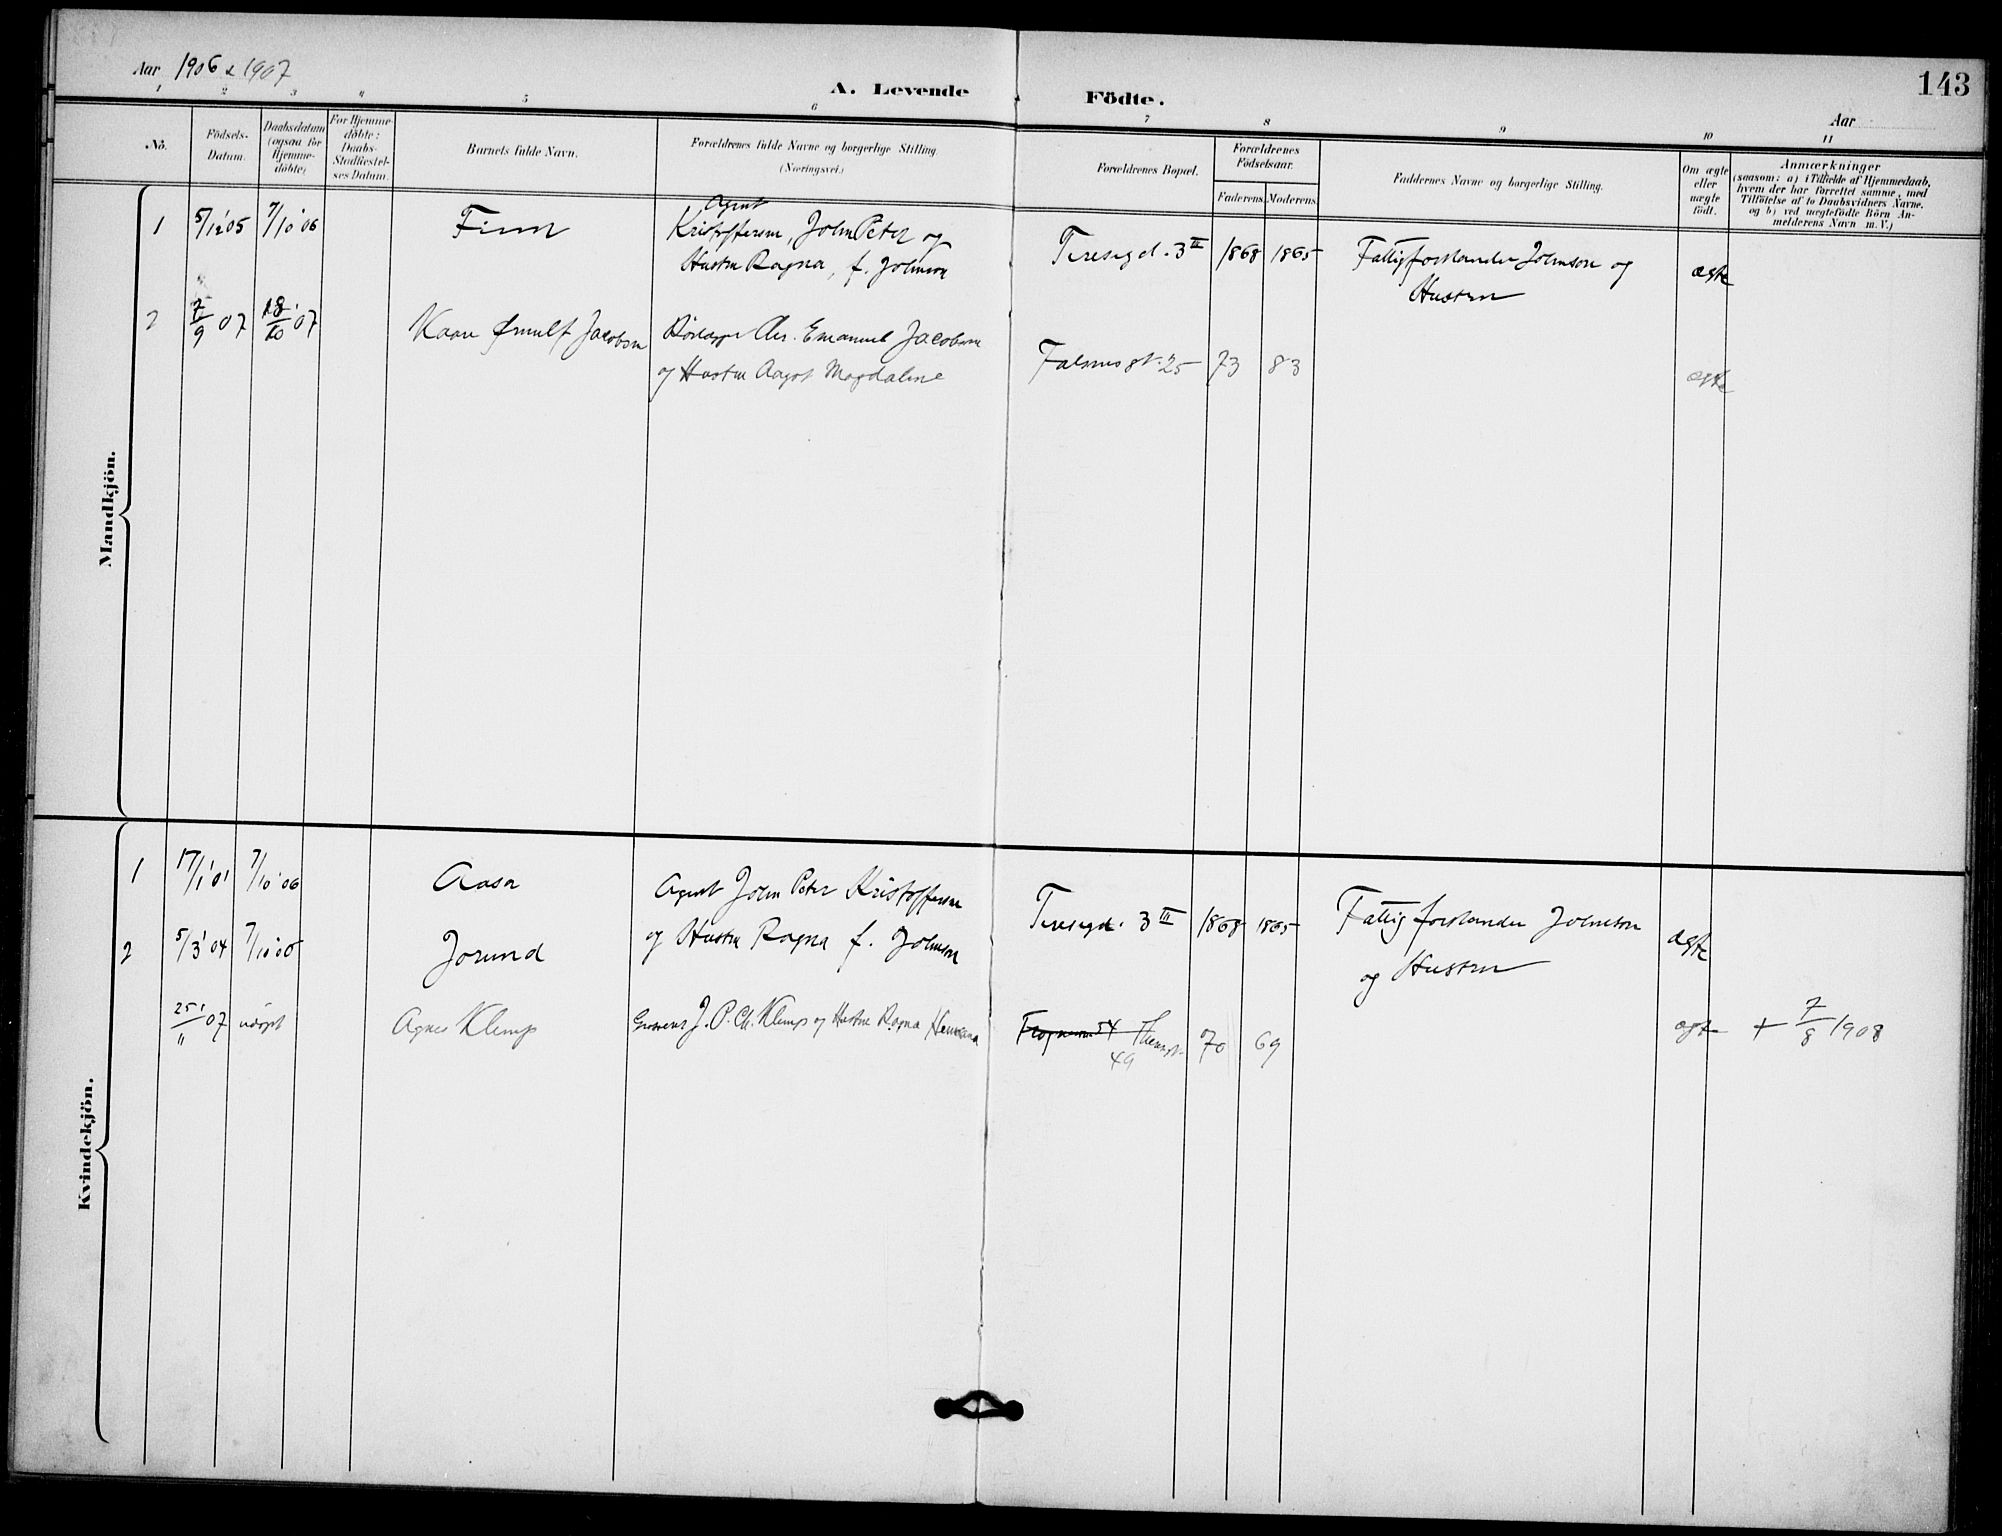 Aar 1906 & 1907
A. Levende Födte.
143
Aar
1 2 3 4 5 6 7 8 9 10 11
No.
Födsels-
Datum.
Daabsdatum
(ogsaa for
Hjemme-
döbte)
For Hjemme-
döbte:
Daabs-
Stadfæstel-
ses Datum.
Barnets fulde Navn.
Forældrenes fulde Navne og borgerlige Stilling
(Næringsvei.)
Forældrenes Bopæl.
Forældrenes
Födselsaar.
Faderens. Moderens.
Faddernes Navne og borgerlige Stilling.
Om ægte
eller
uægte
födt.
Anmærkninger
(saasom: a) i Tilfælde af Hjemmedaab,
hvem der har forrettet samme, med
Tilföielse af to Daabsvidners Navne.
og b) ved uægtefödte Börn An-
melderens Navn m. V.)
Mandkjön.
1 5/12 05 7/10 '06 Finn
Agent
Kristoffersen, John Peter og
Hustru Ragna, f. Johnson
Teresegd. 3 III 1868 1865
Fattigforstander Johnson og
Hustru
ægte
2 7/9 07 18/10 '07 Kaare Ørnulf Jacobsen
Chr. Emanuel Jacobsen
og Hustru Aagot Magdaline
Falsens gt. 25 73 83 ægte
Kvindekjön.
1 17/1 '01 7/10 '06 Aasa
Agent John Peter Kristoffersen
2 5/3 '04 7/10 '06 Jorund
og Hustru Ragna f. Johnson
Teresegd. 3 III 1868 1865
Fattigforstander Johnson
og Hustru
ægte
25/11 07 udøpt Agnes Klemp
J. P. Ch. Klemp og Hustru Ragna
54
49
70 69 ægte + 7/8 1908